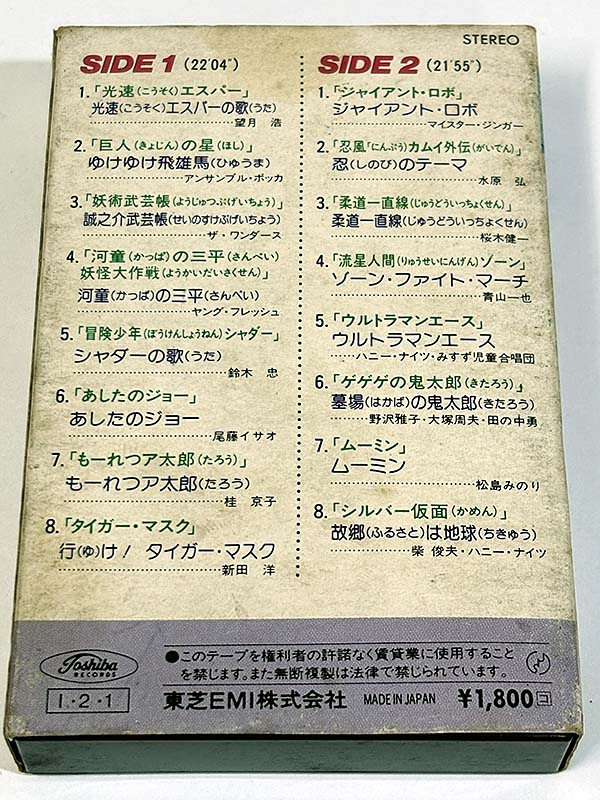 STEREO
SIDE 1 (22'04")
1.「光速(こうそく)エスパー」
光速(こうそく)エスパーの歌(うた)
望月 浩
2.「巨人(きょじん)の星(ほし)」
ゆけゆけ飛雄馬(ひゅうま)
アンサンブル・ボッカ
3.「妖術武芸帳(ようじゅつぶげいちょう)」
誠之介武芸帳(せいのすけぶげいちょう)
ザ・ワンダース
4.「河童(かっぱ)の三平(さんぺい)
妖怪大作戦(ようかいだいさくせん)」
河童(かっぱ)の三平(さんぺい)
ヤング・フレッシュ
5.「冒険少年(ぼうけんしょうねん)シャダー」
シャダーの歌(うた)
鈴木 忠
6.「あしたのジョー」
あしたのジョー
尾藤イサオ
7.「もーれつア太郎(たろう)」
もーれつア太郎(たろう)
桂 京子
8.「タイガー・マスク」
行(ゆ)け! タイガー・マスク
新田 洋
SIDE 2 (21'55")
1.「ジャイアント・ロボ」
ジャイアント・ロボ
マイスター・ジンガー
2.「忍風(にんぷう)カムイ外伝(がいでん)」
忍(しのび)のテーマ
水原 弘
3.「柔道一直線(じゅうどういっちょくせん)」
柔道一直線(じゅうどういっちょくせん)
桜木健一
4.「流星人間(りゅうせいにんげん)ゾーン」
ゾーン・ファイト・マーチ
青山一也
5.「ウルトラマンエース」
ウルトラマンエース
ハニー・ナイツ・みすず児童合唱団
6.「ゲゲゲの鬼太郎(きたろう)」
墓場(はかば)の鬼太郎(きたろう)
野沢雅子・大塚周夫・田の中勇
7.「ムーミン」
ムーミン
松島みのり
8.「シルバー仮面(かめん)」
故郷(ふるさと)は地球(ちきゅう)
柴 俊夫・ハニー・ナイツ
Toshiba
RECORDS
●このテープを権利者の許諾なく賃貸業に使用すること
を禁じます。また無断複製は法律で禁じられています。
I・2・1
東芝EMI株式会社 MADE IN JAPAN ¥1,800 コ